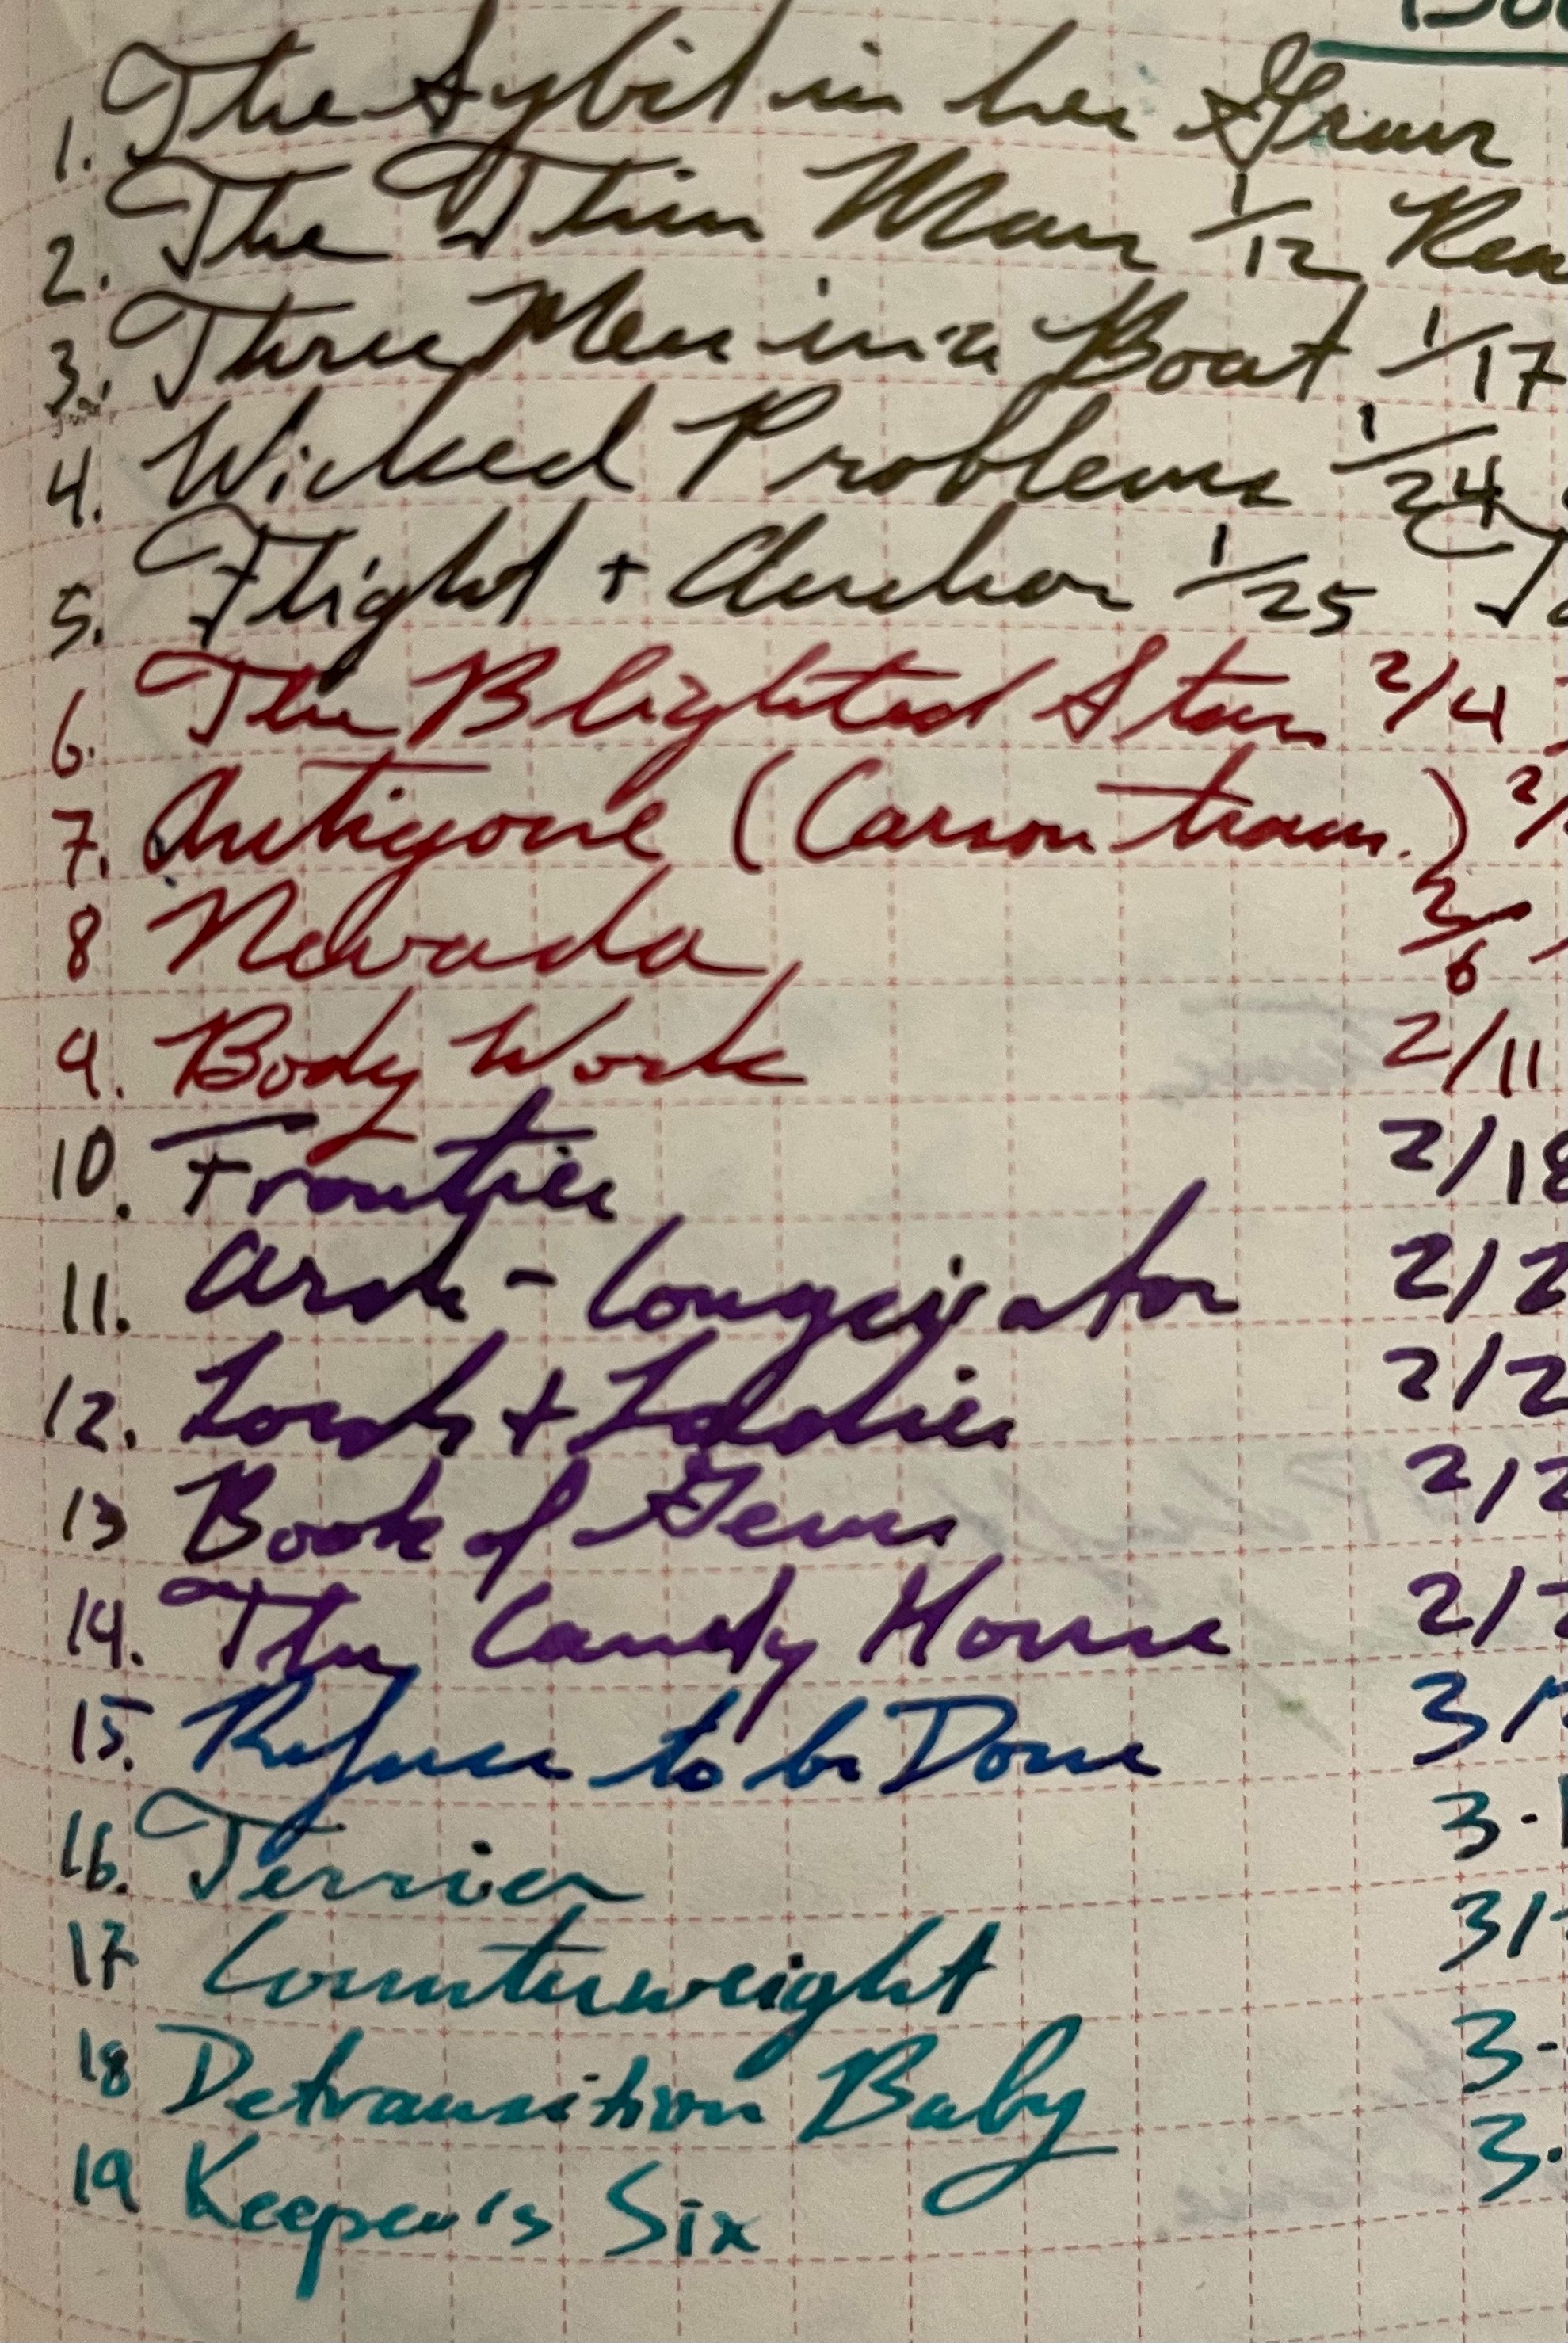 1. The Sybil in her Grave
2. The Thin Man 1/12
3. Three Men in a Boat 1/17
4. Wicked Problems 1/24
5. Flight + Anchor 1/25
6. The Blighted Stars 2/4
7. Antigone (Carson trans.) 2/
8 Nevada 2/6
9. Body Work 2/11
10. Frontier 2/18
11. Arch-Conspirator 2/2
12. Lords + Ladies 2/2
13 Book of Gems 2/2
14. The Candy House 2/2
15. Refuse to be Done 3/
16. Terrier 3-1
17 Counterweight 3/
18 Detransition Baby 3-
19 Keeper's Six 3-